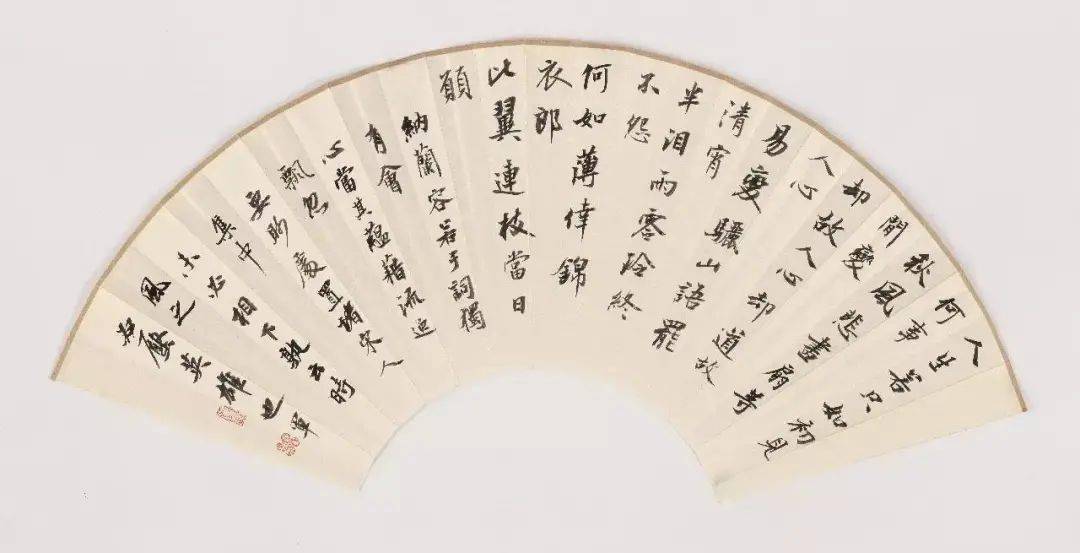 人生若只如初見
何事
秋風悲畫扇等
閒變
却故人心却道故
人心
易變驪山語罷
清宵
半泪雨零玲終
不怨
何如薄倖錦
衣郎
比翼連枝當日
願
納蘭容若于詞獨
有會
心當其蘊藉流逸
飄忽
要眇處置堵宋人
集中
未必相下孰云時
風之
壓英雄也
軍